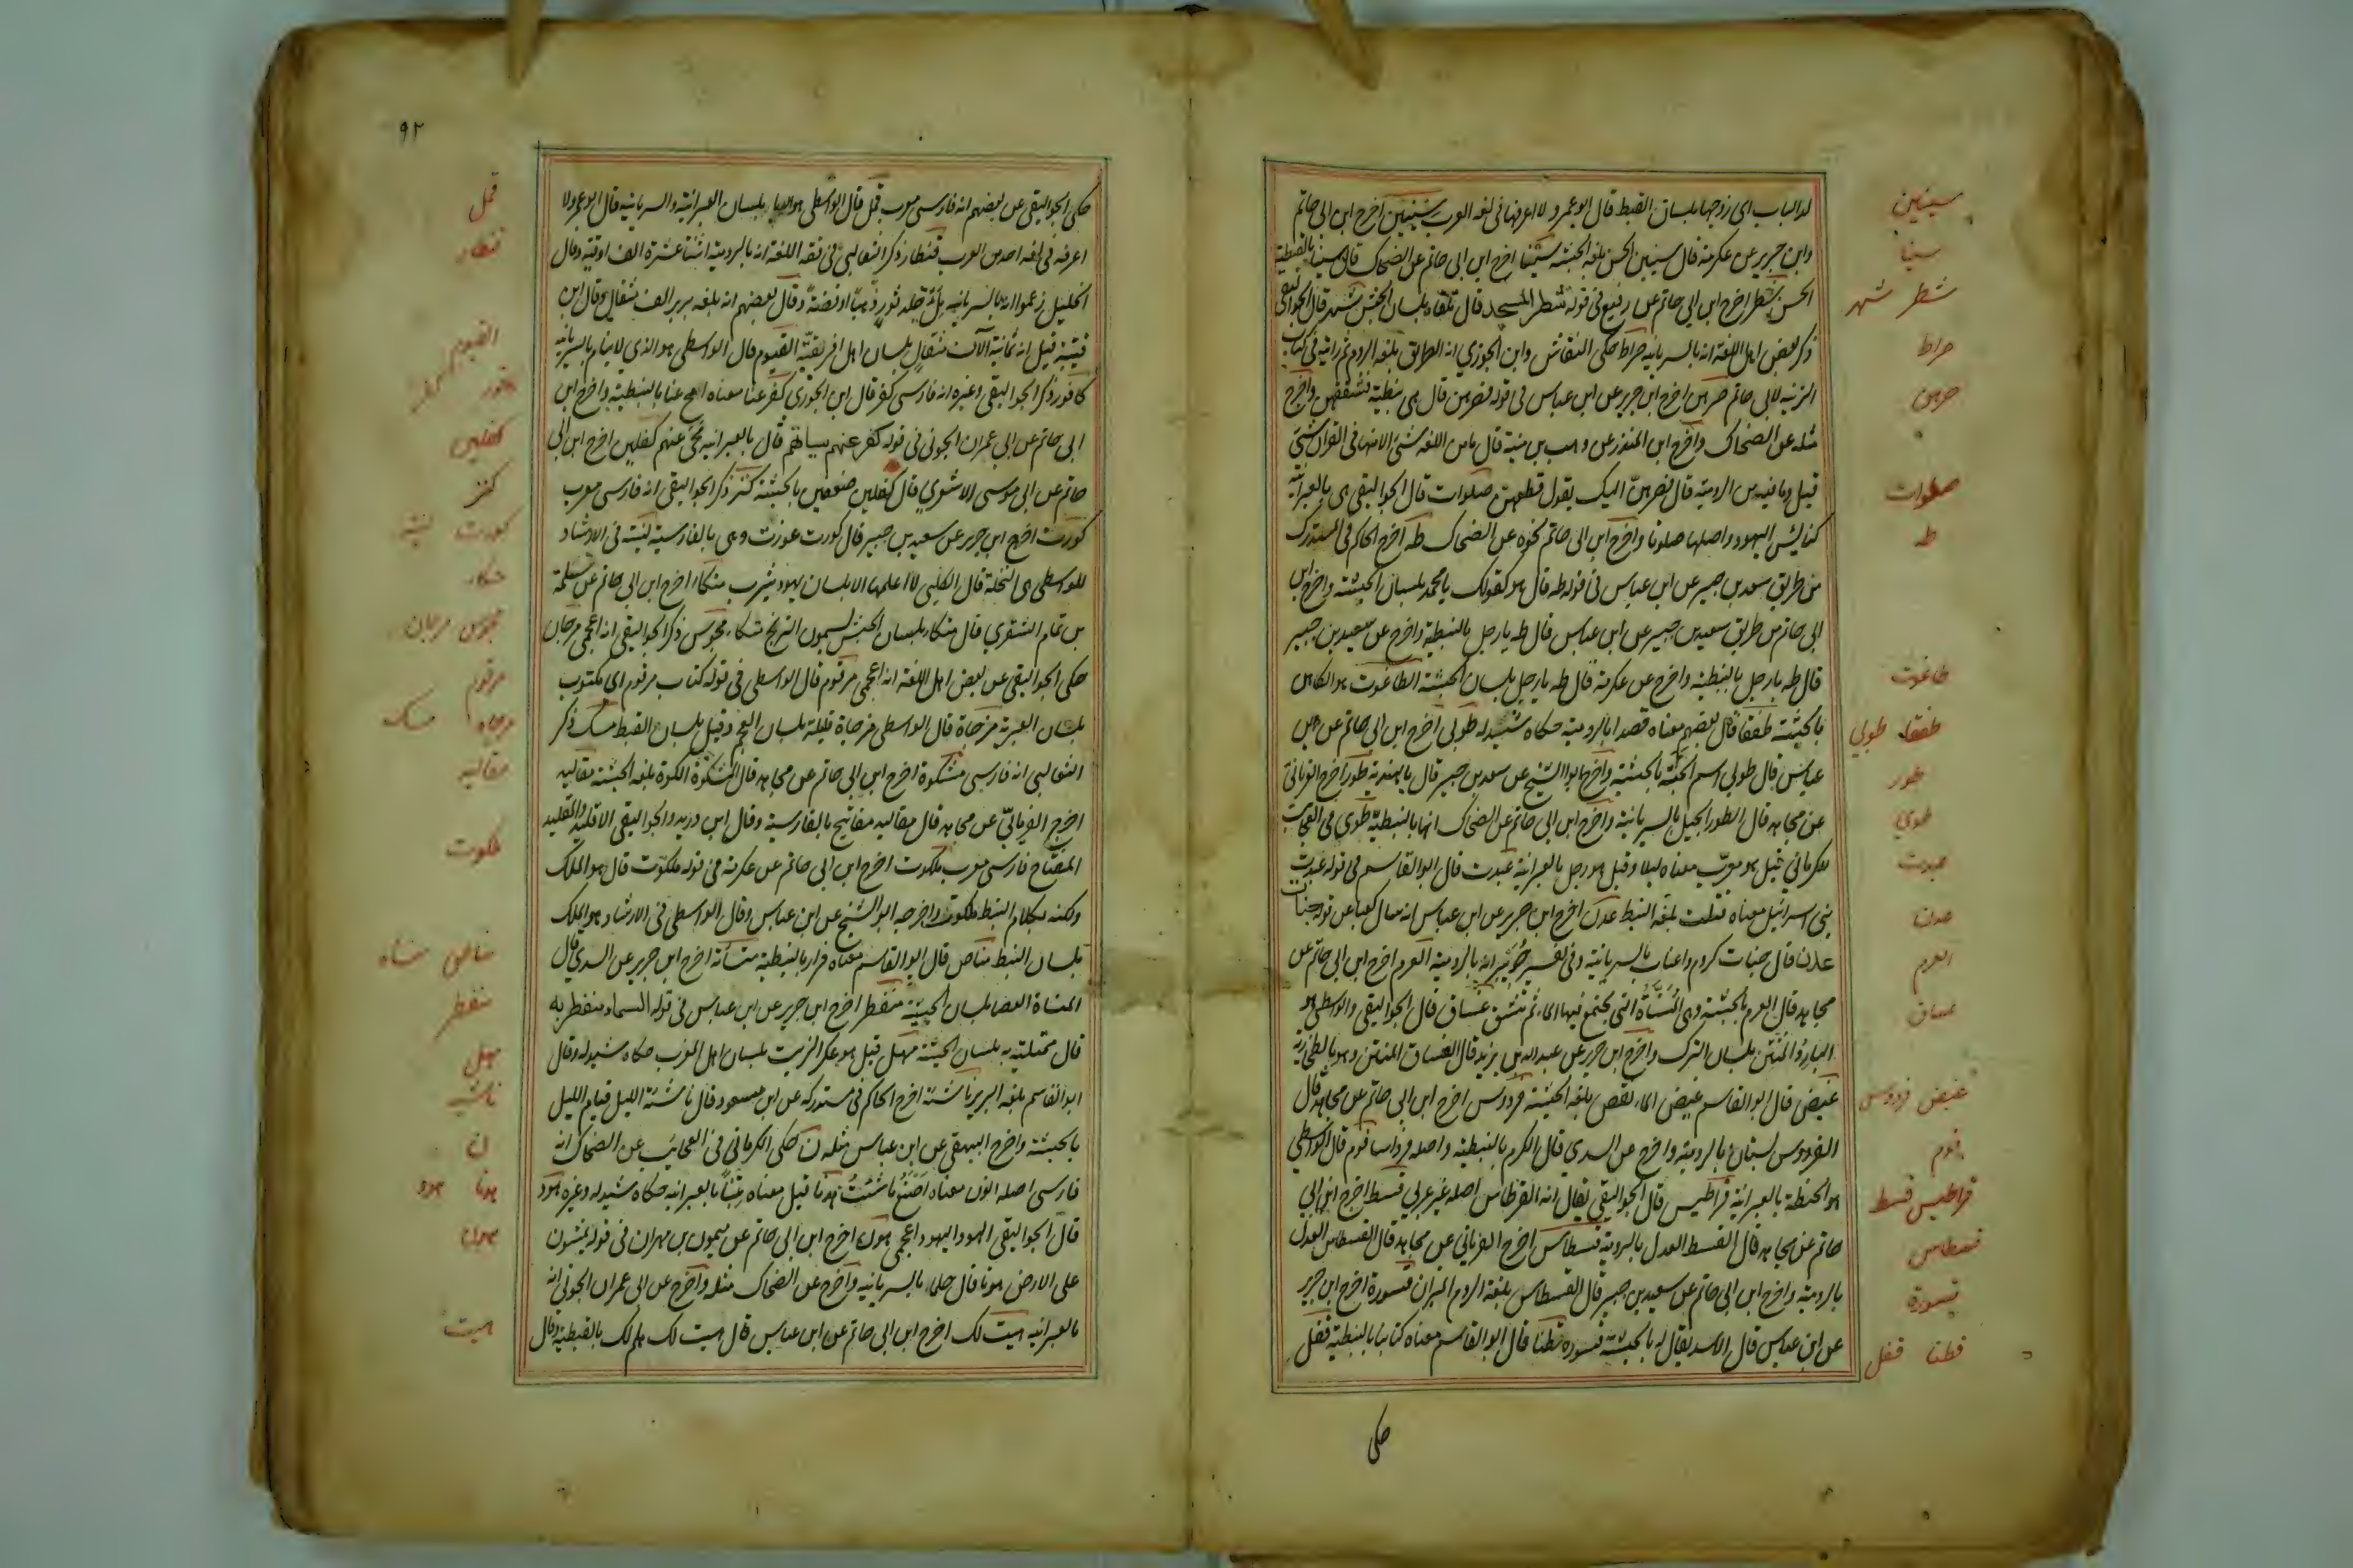 لدا الباب اى زوجها بلسان القبط قال ابو عمرو لا اعرفها فى لغة العرب سينين اخرج ابن ابى حاتم
وابن جرير عن عكرمة قال سينين الحسن بلغة الحبشة سينا اخرج ابن ابى حاتم عن الضحاك قال سينا بالنبطية
الحسن شطر اخرج ابن ابى حاتم عن رفيع فى قوله شطر المسجد قال تلقاء بلسان الحبش شهر قال الجواليقى
ذكر بعض اهل اللغة انه بالسريانية صراط حكى النقاش وابن الجوزي انه الطريق بلغة الروم ثم رايته فى كتاب
الزينة لابى حاتم صرهن اخرج ابن جرير عن ابن عباس فى قوله فصرهن قال هى نبطية فشققهن واخرج
مثله عن الضحاك واخرج ابن المنذر عن وهب بن منبه قال ما من اللغة شئ الا منها فى القران شئ
قيل وما فيه من الرومية قال فصرهن اليك يقول قطعهن صلوات قال الجواليقى هى بالعبرانية
كنايس اليهود واصلها صلوتا واخرج ابن ابى حاتم نحوه عن الضحاك طه اخرج الحاكم فى المستدرك
من طريق سعيد بن جبير عن ابن عباس فى قوله طه قال هو كقولك يا محمد بلسان الحبشة واخرج ابن
ابى حاتم من طريق سعيد بن جبير عن ابن عباس قال طه يا رجل بالنبطية واخرج عن سعيد بن جبير
قال طه يا رجل بالنبطية واخرج عن عكرمة قال طه يا رجل بلسان الحبشة الطاغوت هو الكاهن
بالحبشة طفقا قال بعضهم معناه قصدا بالرومية حكاه شيدله طوبى اخرج ابن ابى حاتم عن ابن
عباس قال طوبى اسم الجنة بالحبشية واخرج ابو الشيخ عن سعيد بن جبير قال بالهندية طور اخرج الفريابى
عن مجاهد قال الطور الجبل بالسريانية واخرج ابن ابى حاتم عن الضحاك انها بالنبطية طوى فى العجائب
للكرمانى قيل هو معرب معناه ليلا وقيل هو رجل بالعبرانية عبدت قال ابو القاسم فى قوله عبدت
بنى اسرائيل معناه قتلت بلغة النبط عدن اخرج ابن جرير عن ابن عباس انه سال كعبا عن قوله جنات
عدن قال جنات كروم واعناب بالسريانية وفى تفسير جويبر انه بالرومية العرم اخرج ابن ابى حاتم عن
مجاهد قال العرم بالحبشية وهى المسناة التى يجتمع فيها الماء ثم ينشق غساق قال الجواليقى والواسطى هو
البارد المنتن بلسان الترك واخرج ابن جرير عن عبد الله بن بريد قال الغساق المنتن وهو بالطخارية
غيض قال ابو القاسم غيض الماء نقص بلغة الحبشة فردوس اخرج ابن ابى حاتم عن مجاهد قال
الفردوس بستان بالرومية واخرج عن السدى قال الكرم بالنبطية واصله فرداسا فوم قال الواسطى
هو الحنطة بالعبرانية قراطيس قال الجواليقى يقال انه القرطاس اصله غير عربي قسط اخرج ابن ابى
حاتم عن مجاهد قال القسط العدل بالرومية قسطاس اخرج الفريابي عن مجاهد قال القسطاس العدل
بالرومية واخرج ابن ابى حاتم عن سعيد بن جبير قال القسطاس بلغة الروم الميزان قسورة اخرج ابن جرير
عن ابن عباس قال الاسد يقال له بالحبشية قسورة قطنا قال ابو القاسم معناه كتابنا بالنبطية قفل
حكى
سينين
سينا
شطر شهر
صراط
صرهن
صلوات
طه
طاغوت
طفقا طوبي
طور
طوي
عبدت
عدن
العرم
غساق
غيض فردوس
فوم
قراطيس قسط
قسطاس
قسورة
قطنا قفل
٩٢
حكى الجواليقى عن بعضهم انه فارسى معرب قمل قال الواسطى هو الدبا بلسان العبرانية والسريانية قال ابو عمرو لا
اعرفه فى لغة احد من العرب قنطار ذكر الثعالبى فى فقه اللغة انه بالرومية اثنتا عشرة الف اوقية وقال
الخليل زعموا انه بالسريانية ملء جلد ثور ذهبا او فضة وقال بعضهم انه بلغة بربر الف مثقال وقال ابن
قتيبة قيل انه ثمانية آلاف مثقال بلسان اهل افريقية القيوم قال الواسطى هو الذي لا ينام بالسريانية
كافور ذكر الجواليقى وغيره انه فارسى كفر قال ابن الجوزى كفر عنا معناه امح عنا بالنبطية واخرج ابن
ابى حاتم عن ابى عمران الجونى فى قوله كفر عنهم سياتهم قال بالعبرانية محى عنهم كفلين اخرج ابن ابى
حاتم عن ابى موسى الاشعري قال كفلين ضعفين بالحبشية كنز ذكر الجواليقى انه فارسى معرب
كورت اخرج ابن جرير عن سعيد بن جبير قال كورت غورت وهى بالفارسية لينة فى الارشاد
للواسطى هى النخلة قال الكلبى لا اعلمها الا بلسان يهود يثرب متكاء اخرج ابن ابى حاتم عن سلمة
بن تمام الشقري قال متكاء بلسان الحبش يسمون الترنج متكاء مجوس ذكر الجواليقى انه اعجمى مرجان
حكى الجواليقى عن بعض اهل اللغة انه اعجمى مرقوم قال الواسطى فى قوله كتاب مرقوم اى مكتوب
بلسان العبرية مزجاة قال الواسطى مزجاة قليلة بلسان العجم وقيل بلسان القبط مسك ذكر
الثعالبى انه فارسى مشكوة اخرج ابن ابى حاتم عن مجاهد قال المشكوة الكوة بلغة الحبشة مقاليد
اخرج الفريابى عن مجاهد قال مقاليد مفاتيح بالفارسية وقال ابن دريد والجواليقى الاقليد والمقليد
المفتاح فارسى معرب ملكوت اخرج ابن ابى حاتم عن عكرمة فى قوله ملكوت قال هو الملك
ولكنه بكلام النبط ملكوت واخرجه ابو الشيخ عن ابن عباس وقال الواسطى فى الارشاد هو الملك
بلسان النبط مناص قال ابو القاسم معناه فرار بالنبطية منسأة اخرج ابن جرير عن السدى قال
المنساة العصا بلسان الحبشية منفطر اخرج ابن جرير عن ابن عباس فى قوله السماء منفطر به
قال ممتلية به بلسان الحبشة مهل قيل هو عكر الزيت بلسان اهل المغرب حكاه شيدله وقال
ابو القاسم بلغة البربر ناشئة اخرج الحاكم فى مستدركه عن ابن مسعود قال ناشئة الليل قيام الليل
بالحبشة واخرج البيهقى عن ابن عباس مثله ن حكى الكرمانى فى العجايب عن الضحاك انه
فارسى اصله انون معناه اصنع ما شئت هدنا قيل معناه تبنا بالعبرانية حكاه شيدله وغيره هود
قال الجواليقى الهود اليهود اعجمى هون اخرج ابن ابى حاتم عن ميمون بن مهران فى قوله يمشون
على الارض هونا قال حلماء بالسريانية واخرج عن الضحاك مثله واخرج عن ابى عمران الجونى انه
بالعبرانية هيت لك اخرج ابن ابى حاتم عن ابن عباس قال هيت لك هلم لك بالقبطية وقال
قمل
قنطار
القيوم
كفلين
كنز
كورت لينة
متكاء
مجوس مرجان
مرقوم
مزجاه مسك
مقاليد
ملكوت
مناص منساه
منفطر
مهل
ناشئه
ن
هدنا هود
هون
هيت